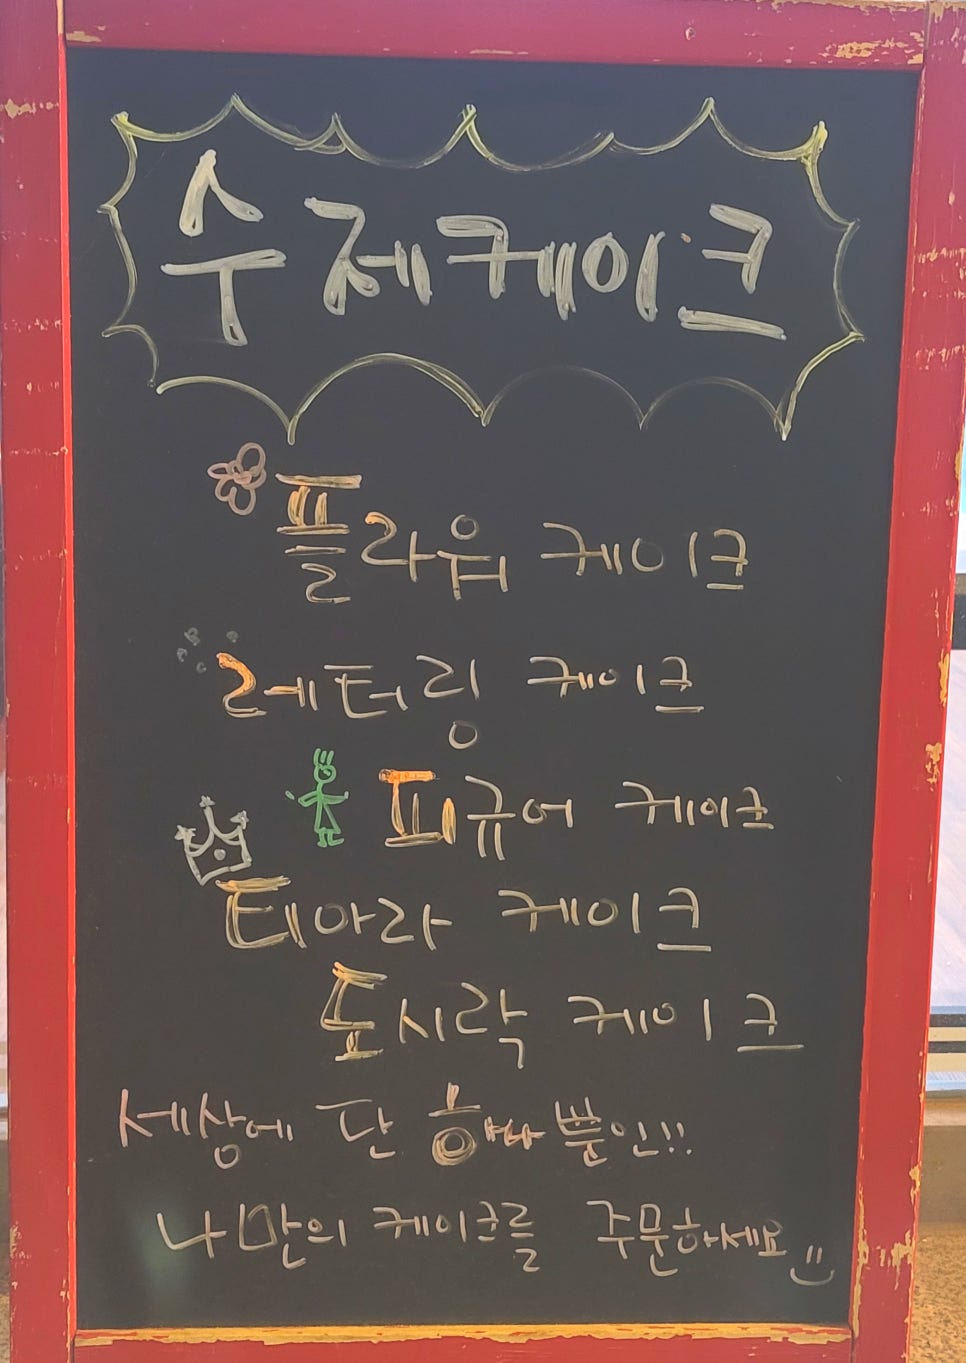 수제케이크
플라워 케이크
레터링 케이크
피규어 케이크
티아라 케이크
도시락 케이크
세상에 단 하나뿐인!!
나만의 케이크를 주문하세요